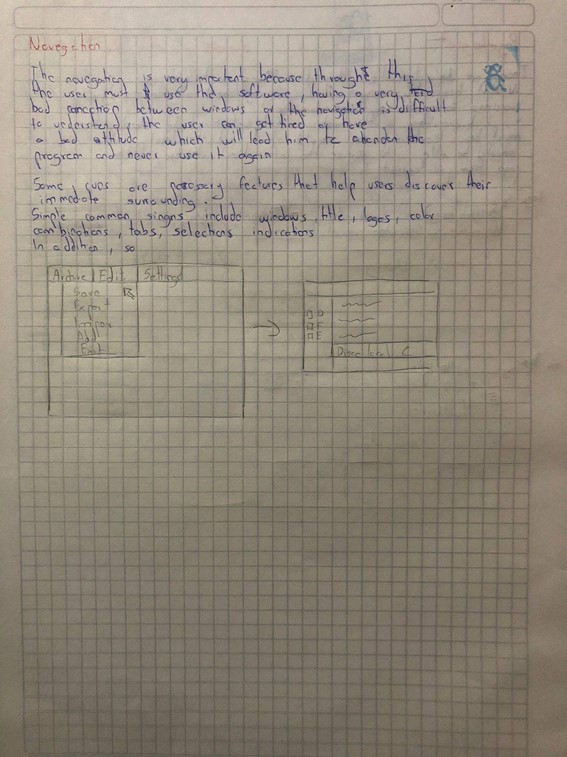 Navegation
The navegation is very important because throught this
the user must use the software, having a very
bad conection between windows or the navigation is difficult
to understand, the user can get tired or have
a bad attitude which will lead him to abandon the
program and never use it again
Some cues are necessary features that help users discover their
immediate surrounding.
Simple common signs include windows title, logos, color
combinations, tabs, selections indications
In addition, so
Archive Edit Settings
Save
Export
Import
Add
Exit
D
F
E
Disco local C